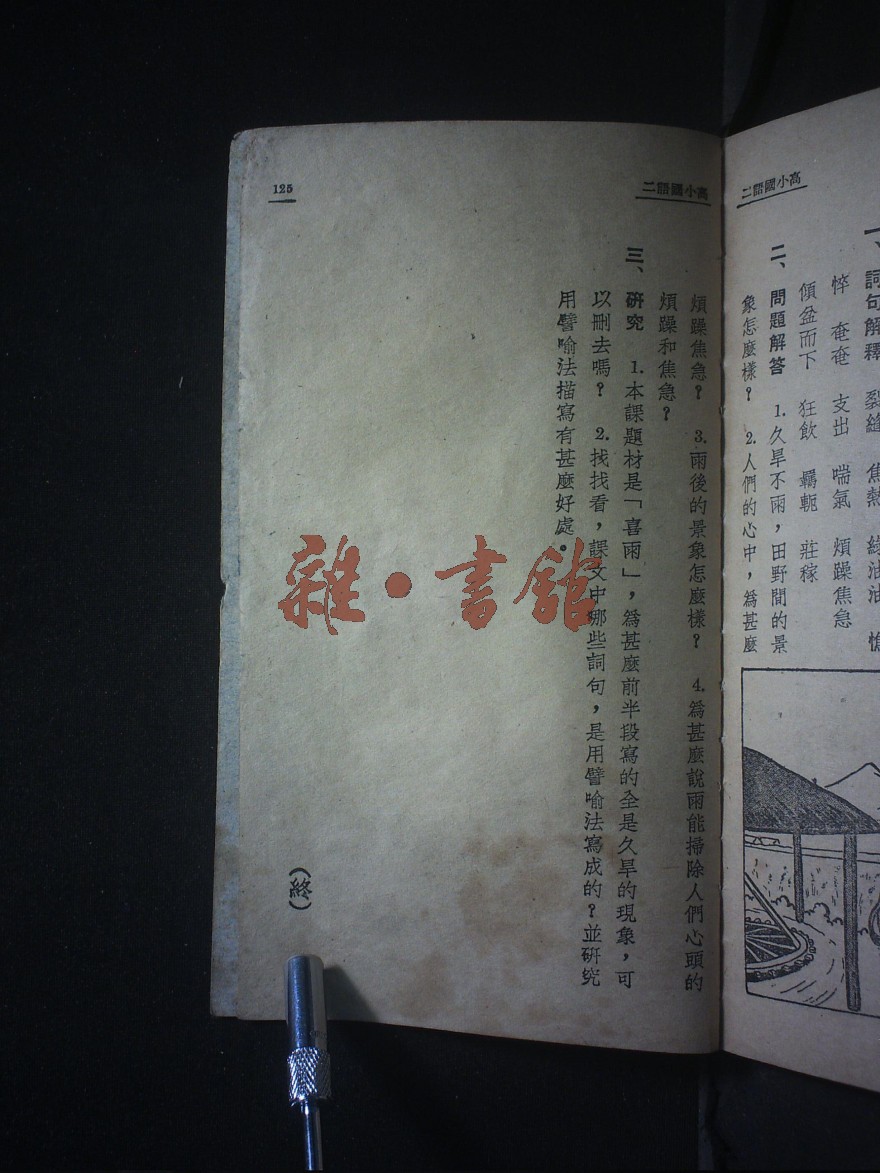 高小國語二
一、詞句解釋　裂縫　焦熱　綠油油　憔
悴　奄奄　支出　喘氣　煩躁焦急
傾盆而下　狂飲　羈軛　莊稼
二、問題解答　1.久旱不雨，田野間的景
象怎麼樣？　2.人們的心中，爲甚麼
高小國語二
煩躁焦急？　3.雨後的景象怎麼樣？　4.爲甚麼說雨能掃除人們心頭的
煩躁和焦急？
三、研究　1.本課題材是「喜雨」，爲甚麼前半段寫的全是久旱的現象，可
以刪去嗎？　2.找找看，課文中哪些詞句，是用譬喻法寫成的？並研究
用譬喻法描寫有甚麼好處。
（終）
125
雜·書館